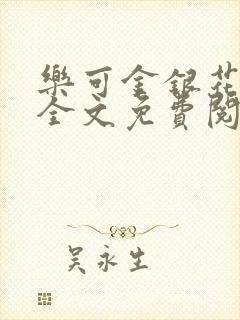 樂可金銀花
全文免費閱
吴永生